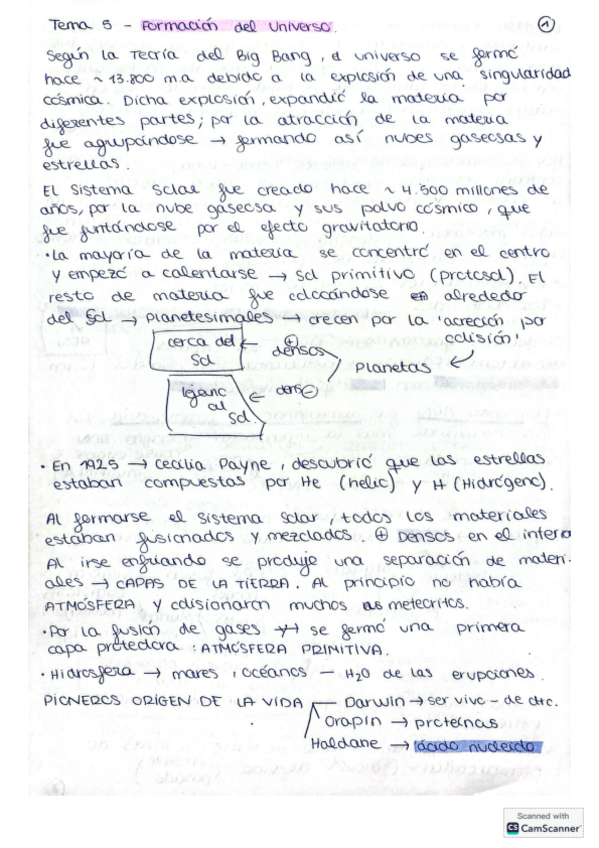 Tema 5 - Formación del Universo. 1
Según la Teoría del Big Bang, el universo se formó
hace ~ 13.800 m.a debido a la explosión de una singularidad
cósmica. Dicha explosión, expandió la materia por
diferentes partes; por la atracción de la materia
fue agrupándose → formando así nubes gaseosas y
estrellas.
El Sistema Solar fue creado hace ~ 4.500 millones de
años, por la nube gaseosa y sus polvo cósmico, que
fue juntándose por el efecto gravitatorio.
· La mayoría de la materia se concentró en el centro
y empezó a calentarse → Sol primitivo (protosol). El
resto de materia fue colocándose alrededor
del Sol → Planetesimales → crecen por la 'acreción por
colisión'
cerca del Sol ← ⊕ densos
Planetas ←
lejano al Sol. ← dens ⊖
· En 1925 → Cecilia Payne, descubrió que las estrellas
estaban compuestas por He (helio) y H (Hidrógeno).
Al formarse el sistema solar, todos los materiales
estaban fusionados y mezclados. ⊕ Densos en el interior
Al irse enfriando se produje una separación de materi-
ales → CAPAS DE LA TIERRA. Al principio no había
ATMÓSFERA y colisionaron muchos meteoritos.
· Por la fusión de gases → se formó una primera
capa protectora : ATMÓSFERA PRIMITIVA.
· Hidrosfera → mares, océanos - H₂O de las erupciones.
PIONEROS ORIGEN DE LA VIDA — Darwin → ser vivo - de otro.
Oparin → proteínas
Haldane → ácido nucleido
Scanned with
CS CamScanner